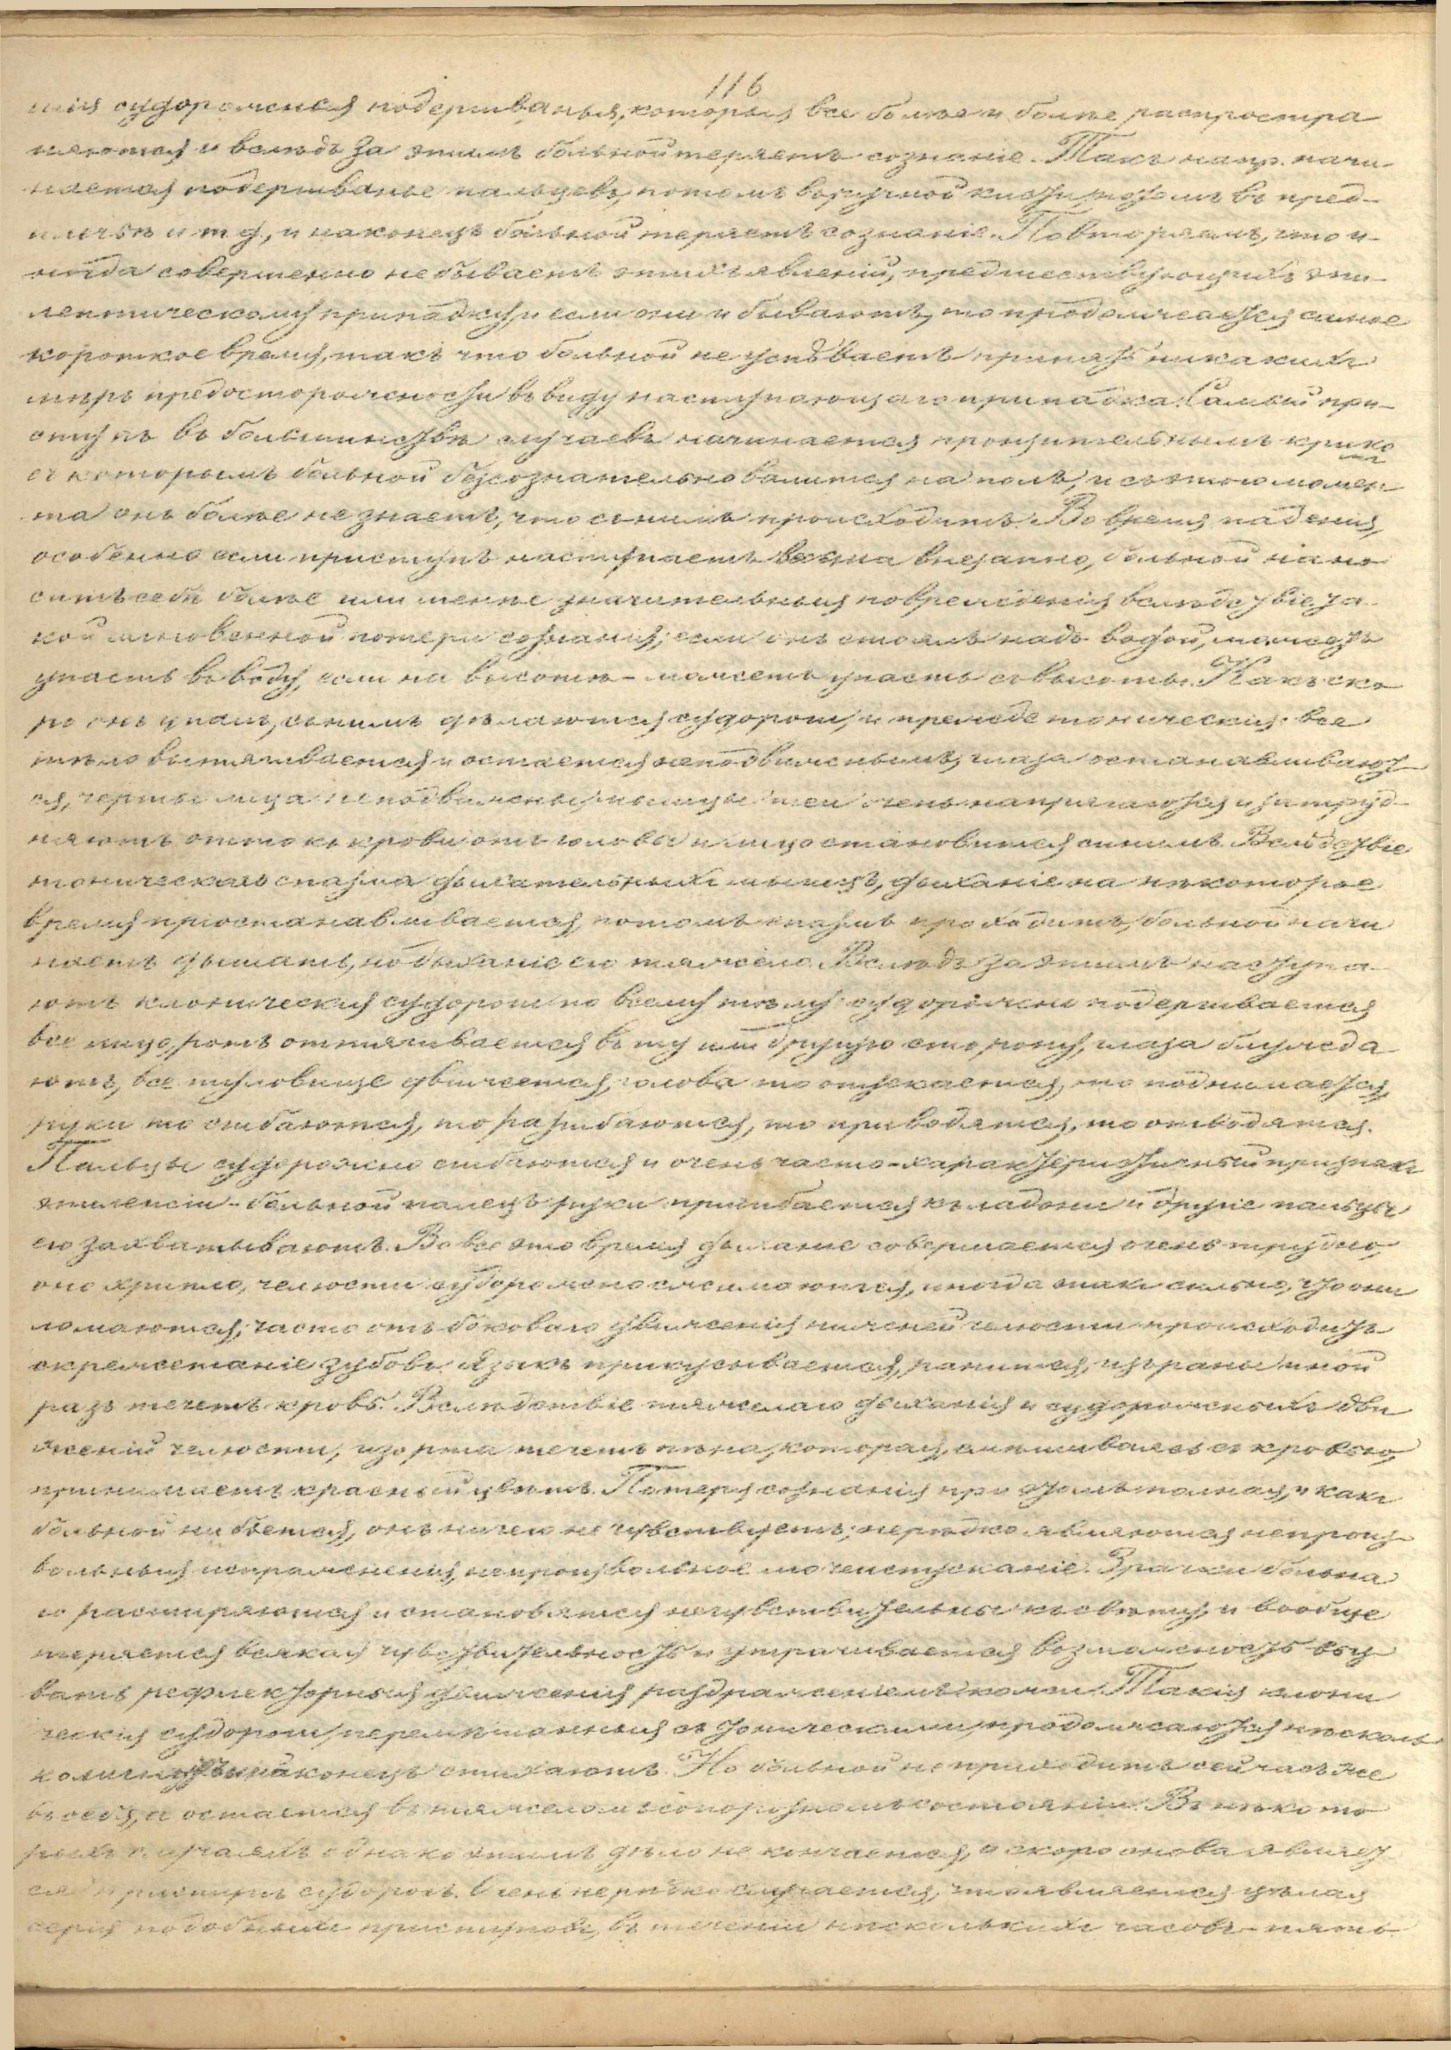 116
шія судорожныя подергиванья, которыя все более и более распростра
няются и вслѣдъ за этимъ больной теряетъ сознаніе. Такъ напр. начи-
нается подергиванье пальцевъ, потомъ въ ручной кисти, потомъ въ пред-
плечьѣ и т. д., и наконецъ больной теряетъ сознаніе. Повторяемъ, что и-
ногда совершенно не бываетъ этихъ явленій, предшествующихъ эпи-
лептическому припадку, и если они и бываютъ, то продолжаются самое
короткое время, такъ что больной не успѣваетъ принять никакихъ
мѣръ предосторожности въ виду наступающаго припадка. Самый при-
ступъ въ большинствѣ случаевъ начинается пронзительнымъ крико
мъ
съ которымъ больной безсознательно валится на полъ, и съ этого момен
та онъ болѣе не знаетъ, что съ нимъ происходитъ. Во время паденія,
особенно если приступъ наступаетъ весьма внезапно, больной нано
ситъ себѣ болѣе или менѣе значительныя поврежденія вслѣдствіе та
кой мгновенной потери сознанія; если онъ стоялъ надъ водой, можетъ
упасть въ воду, если на высотѣ - можетъ упасть съ высоты. Какъ ско
ро онъ упалъ, съ нимъ дѣлаются судороги, и прежде тоническія: все
тѣло вытягивается и остается неподвижнымъ, глаза останавливают
ся, черты лица неподвижны, мышцы шеи очень напрягаются и затруд-
няютъ оттокъ крови отъ головы и лицо становится синимъ. Вслѣдствіе
тоническаго спазма дыхательныхъ мышцъ, дыханіе на нѣкоторое
время пріостанавливается, потомъ спазмъ проходитъ, больной начи
наетъ дышать, но дыханіе его тяжело. Вслѣдъ за этимъ наступа-
ютъ клоническія судороги по всему тѣлу: судорожно подергивается
все лицо, ротъ оттягивается въ ту или другую сторону, глаза блужда
ютъ, все туловище движется, голова то опускается, то поднимается,
руки то сгибаются, то разгибаются, то приводятся, то отводятся.
Пальцы судорожно сгибаются и очень часто - характеристичный признакъ
эпилепсіи - большой палецъ руки пригибается къ ладони и другіе пальцы
его захватываютъ. Во все это время дыханіе совершается очень трудно,
оно хрипло, челюсти судорожно сжимаются, иногда такъ сильно, что они
ломаются; часто отъ боковаго движенія нижней челюсти происходитъ
скрежетаніе зубовъ. Языкъ прикусывается, ранится, изъ раны иной
разъ течетъ кровь. Вслѣдствіе тяжелаго дыханія и судорожныхъ дви
женій челюсти, изо рта течетъ пѣна, которая, смѣшиваясь съ кровью,
принимаетъ красный цвѣтъ. Потеря сознанія при этомъ полная, и какъ
больной ни бьется, онъ ничего не чувствуетъ; нерѣдко являются непроиз-
вольныя испражненія, непроизвольное мочеиспусканіе. Зрачки больна
го расширяются и становятся нечувствительны къ свѣту, и вообще
теряется всякая чувствительность и утрачивается возможность вызы
вать рефлекторныя движенія раздраженіемъ кожи. Такія клони
ческія судороги, перемѣшанныя съ тоническими, продолжаются нѣсколь
ко минутъ и наконецъ стихаютъ. Но больной не приходитъ сейчасъ же
въ себя, а остается въ тяжеломъ сопорозномъ состояніи. Въ нѣкото
рыхъ случаяхъ однако этимъ дѣло не кончается, и скоро снова являет
ся приступъ судорогъ. Очень нерѣдко случается, что является цѣлая
серія подобныхъ приступовъ, въ теченіи нѣсколькихъ часовъ - пять